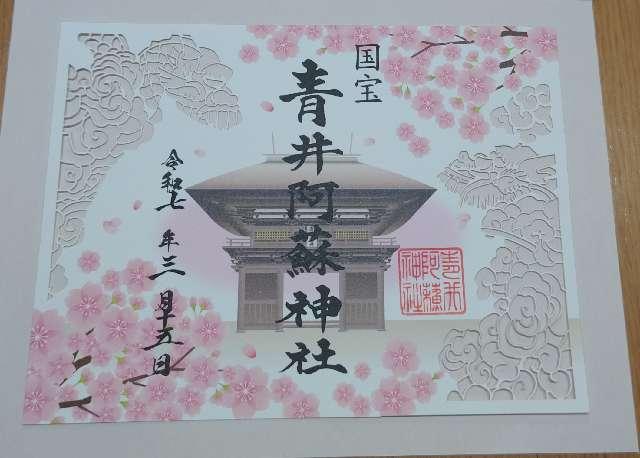 国宝
青井阿蘇神社
令和七年三月十五日
青井
阿蘇
神社